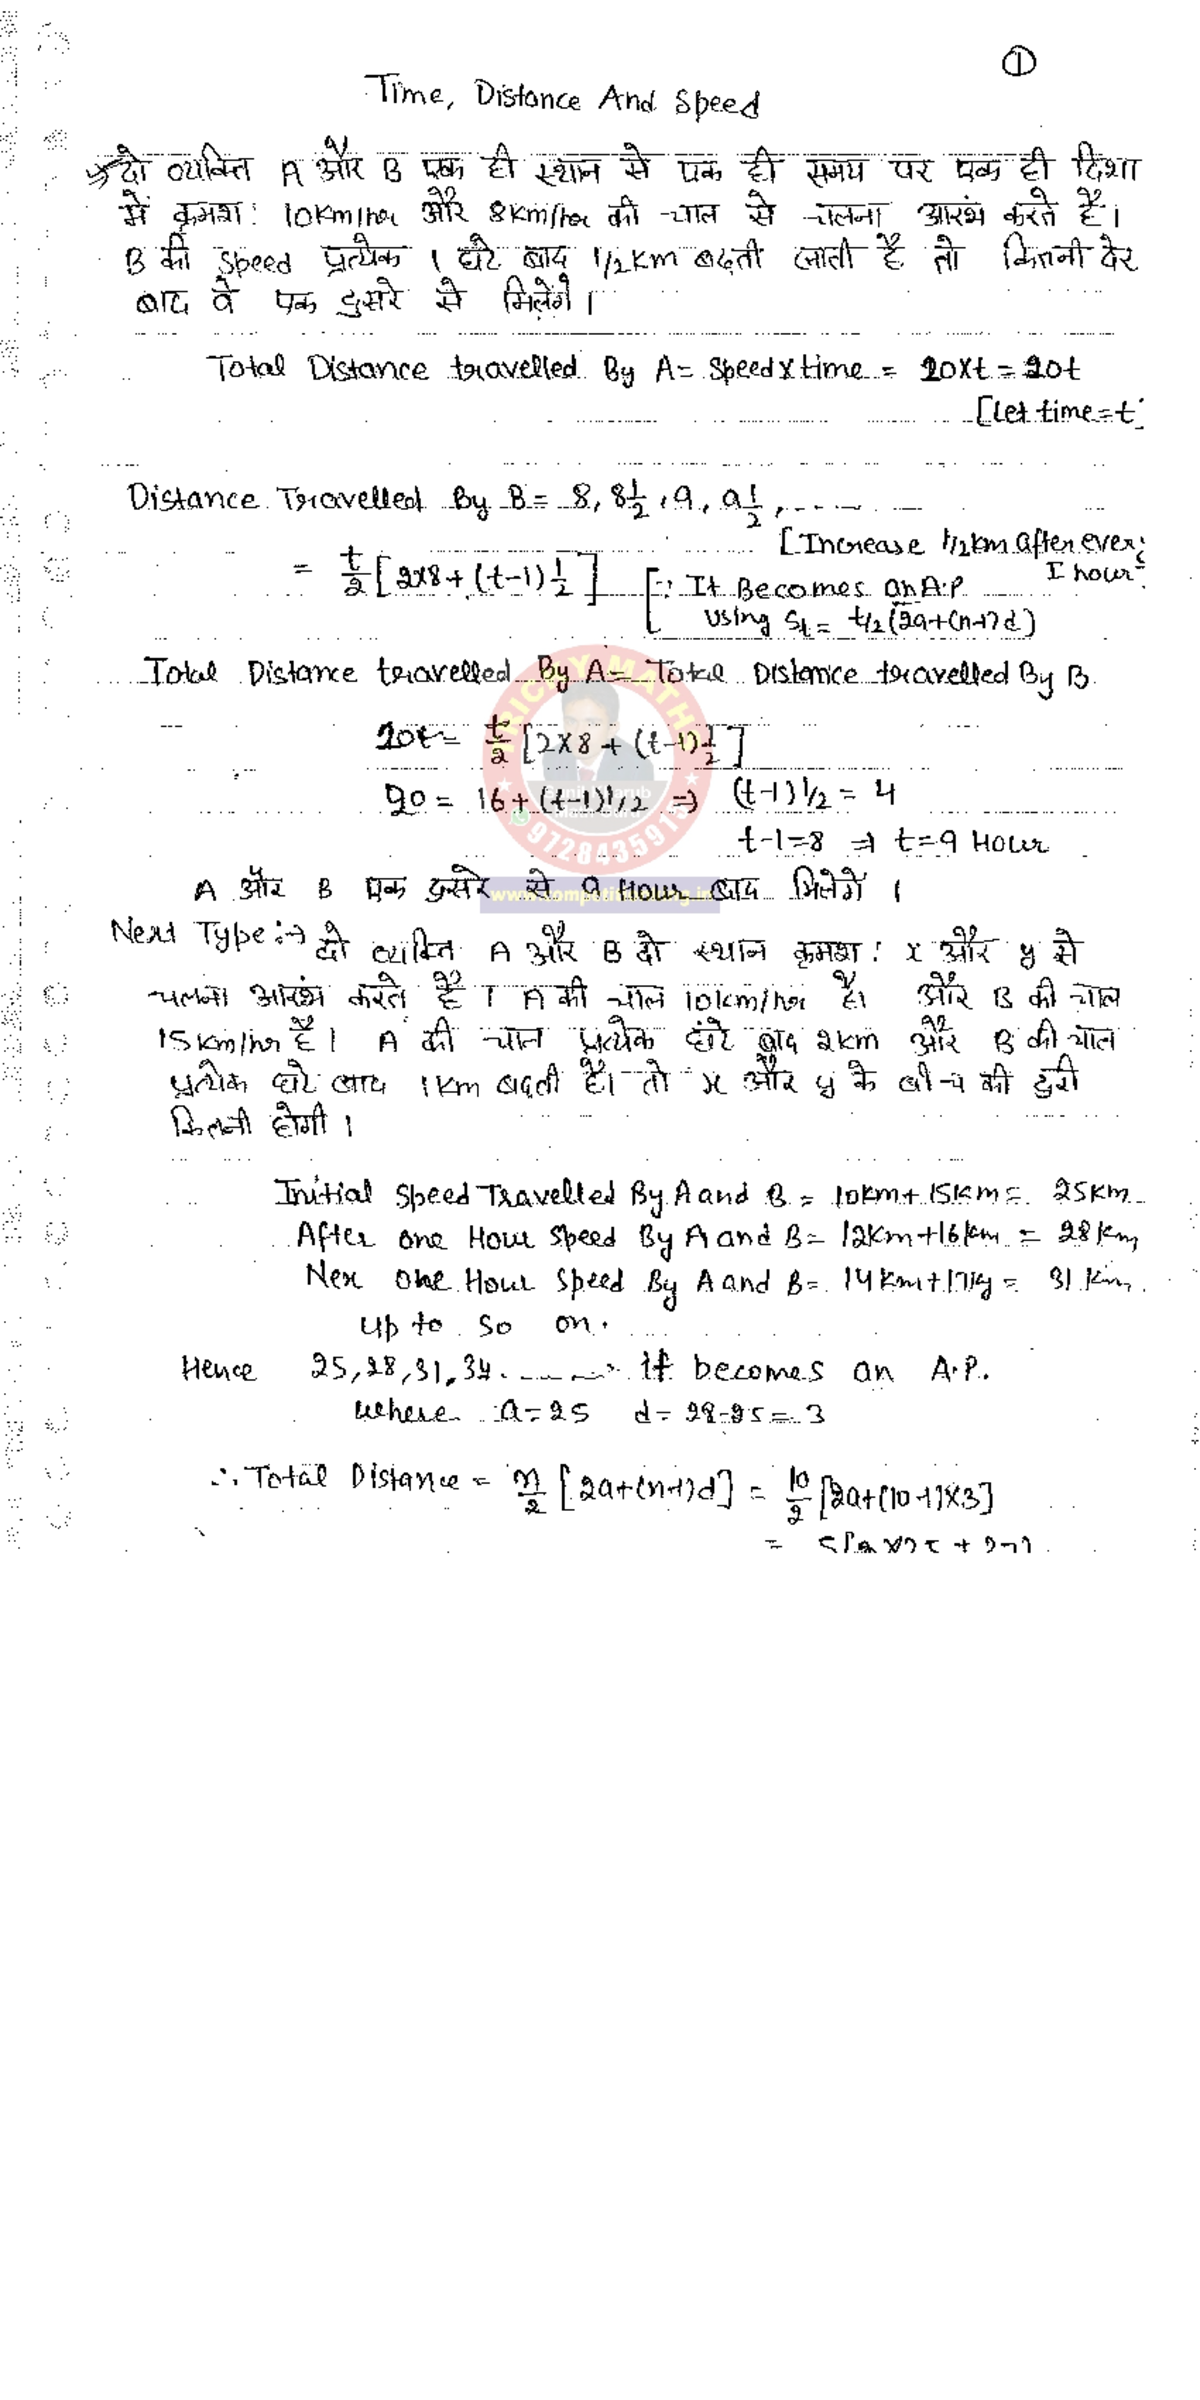 ①
Time, Distance And Speed
दो व्यक्ति A और B एक ही स्थान से एक ही समय पर एक ही दिशा
में क्रमश: 10Km/hr और 8km/hr की चाल से चलना आरंभ करते हैं।
B की Speed प्रत्येक 1 घंटे बाद 1/2 Km बढती जाती है तो कितनी देर
बाद वे एक दुसरे से मिलेंगे।
Total Distance travelled By A = Speed x time = 10xt = 10t
[let time = t]
Distance Travelled By B = 8, 8 1/2, 9, 9 1/2, ....
[Increase 1/2 km after every
1 hour
= t/2 [2x8 + (t-1) 1/2] [∵ It Becomes an A.P
using St = t/2 (2a+(n-1)d)
Total Distance travelled By A = Total Distance travelled By B
10t = t/2 [2x8 + (t-1) 1/2]
20 = 16 + (t-1) 1/2 ⇒ (t-1) 1/2 = 4
t-1=8 ⇒ t=9 Hour
TRICKY MATHS
9728435915
A और B एक दुसरे से 9 Hour बाद मिलेगें।
Next Type :→ दो व्यक्ति A और B दो स्थान क्रमश: x और y से
चलना आरंभ करते है। A की चाल 10km/hr है। और B की चाल
15 km/hr है। A की चाल प्रत्येक घंटे बाद 2km और B की चाल
प्रत्येक घंटे बाद 1Km बढती है। तो x और y के बीच की दुरी
कितनी होगी।
Initial Speed Travelled By A and B = 10km + 15km = 25km
After one Hour Speed By A and B = 12km+16km = 28 km
Nex one Hour Speed By A and B = 14km+17 = 31 km
up to so on.
Hence 25,28,31,34....... it becomes an A.P.
where a=25 d= 28-25 = 3
∴ Total Distance = n/2 [2a+(n-1)d] = 10/2 [2a+(10-1)x3]